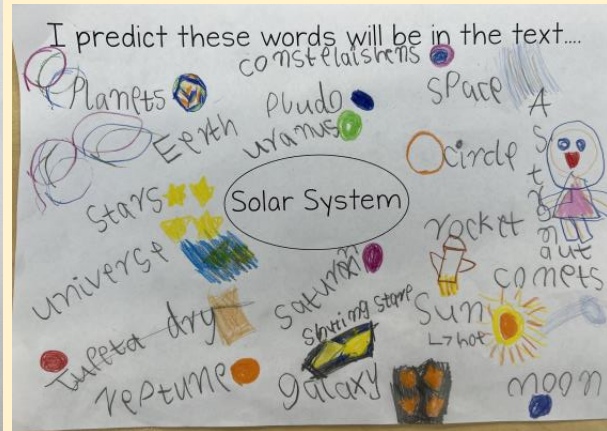 I predict these words will be in the text....
constelaishens
Planets
Pludo
Space
Eerth
uranus
circle
Astronaut
stars
Solar System
rocket
universe
saturan
comets
Sun
↳hot
dry
Jupeta
Neptune
galaxy
moon